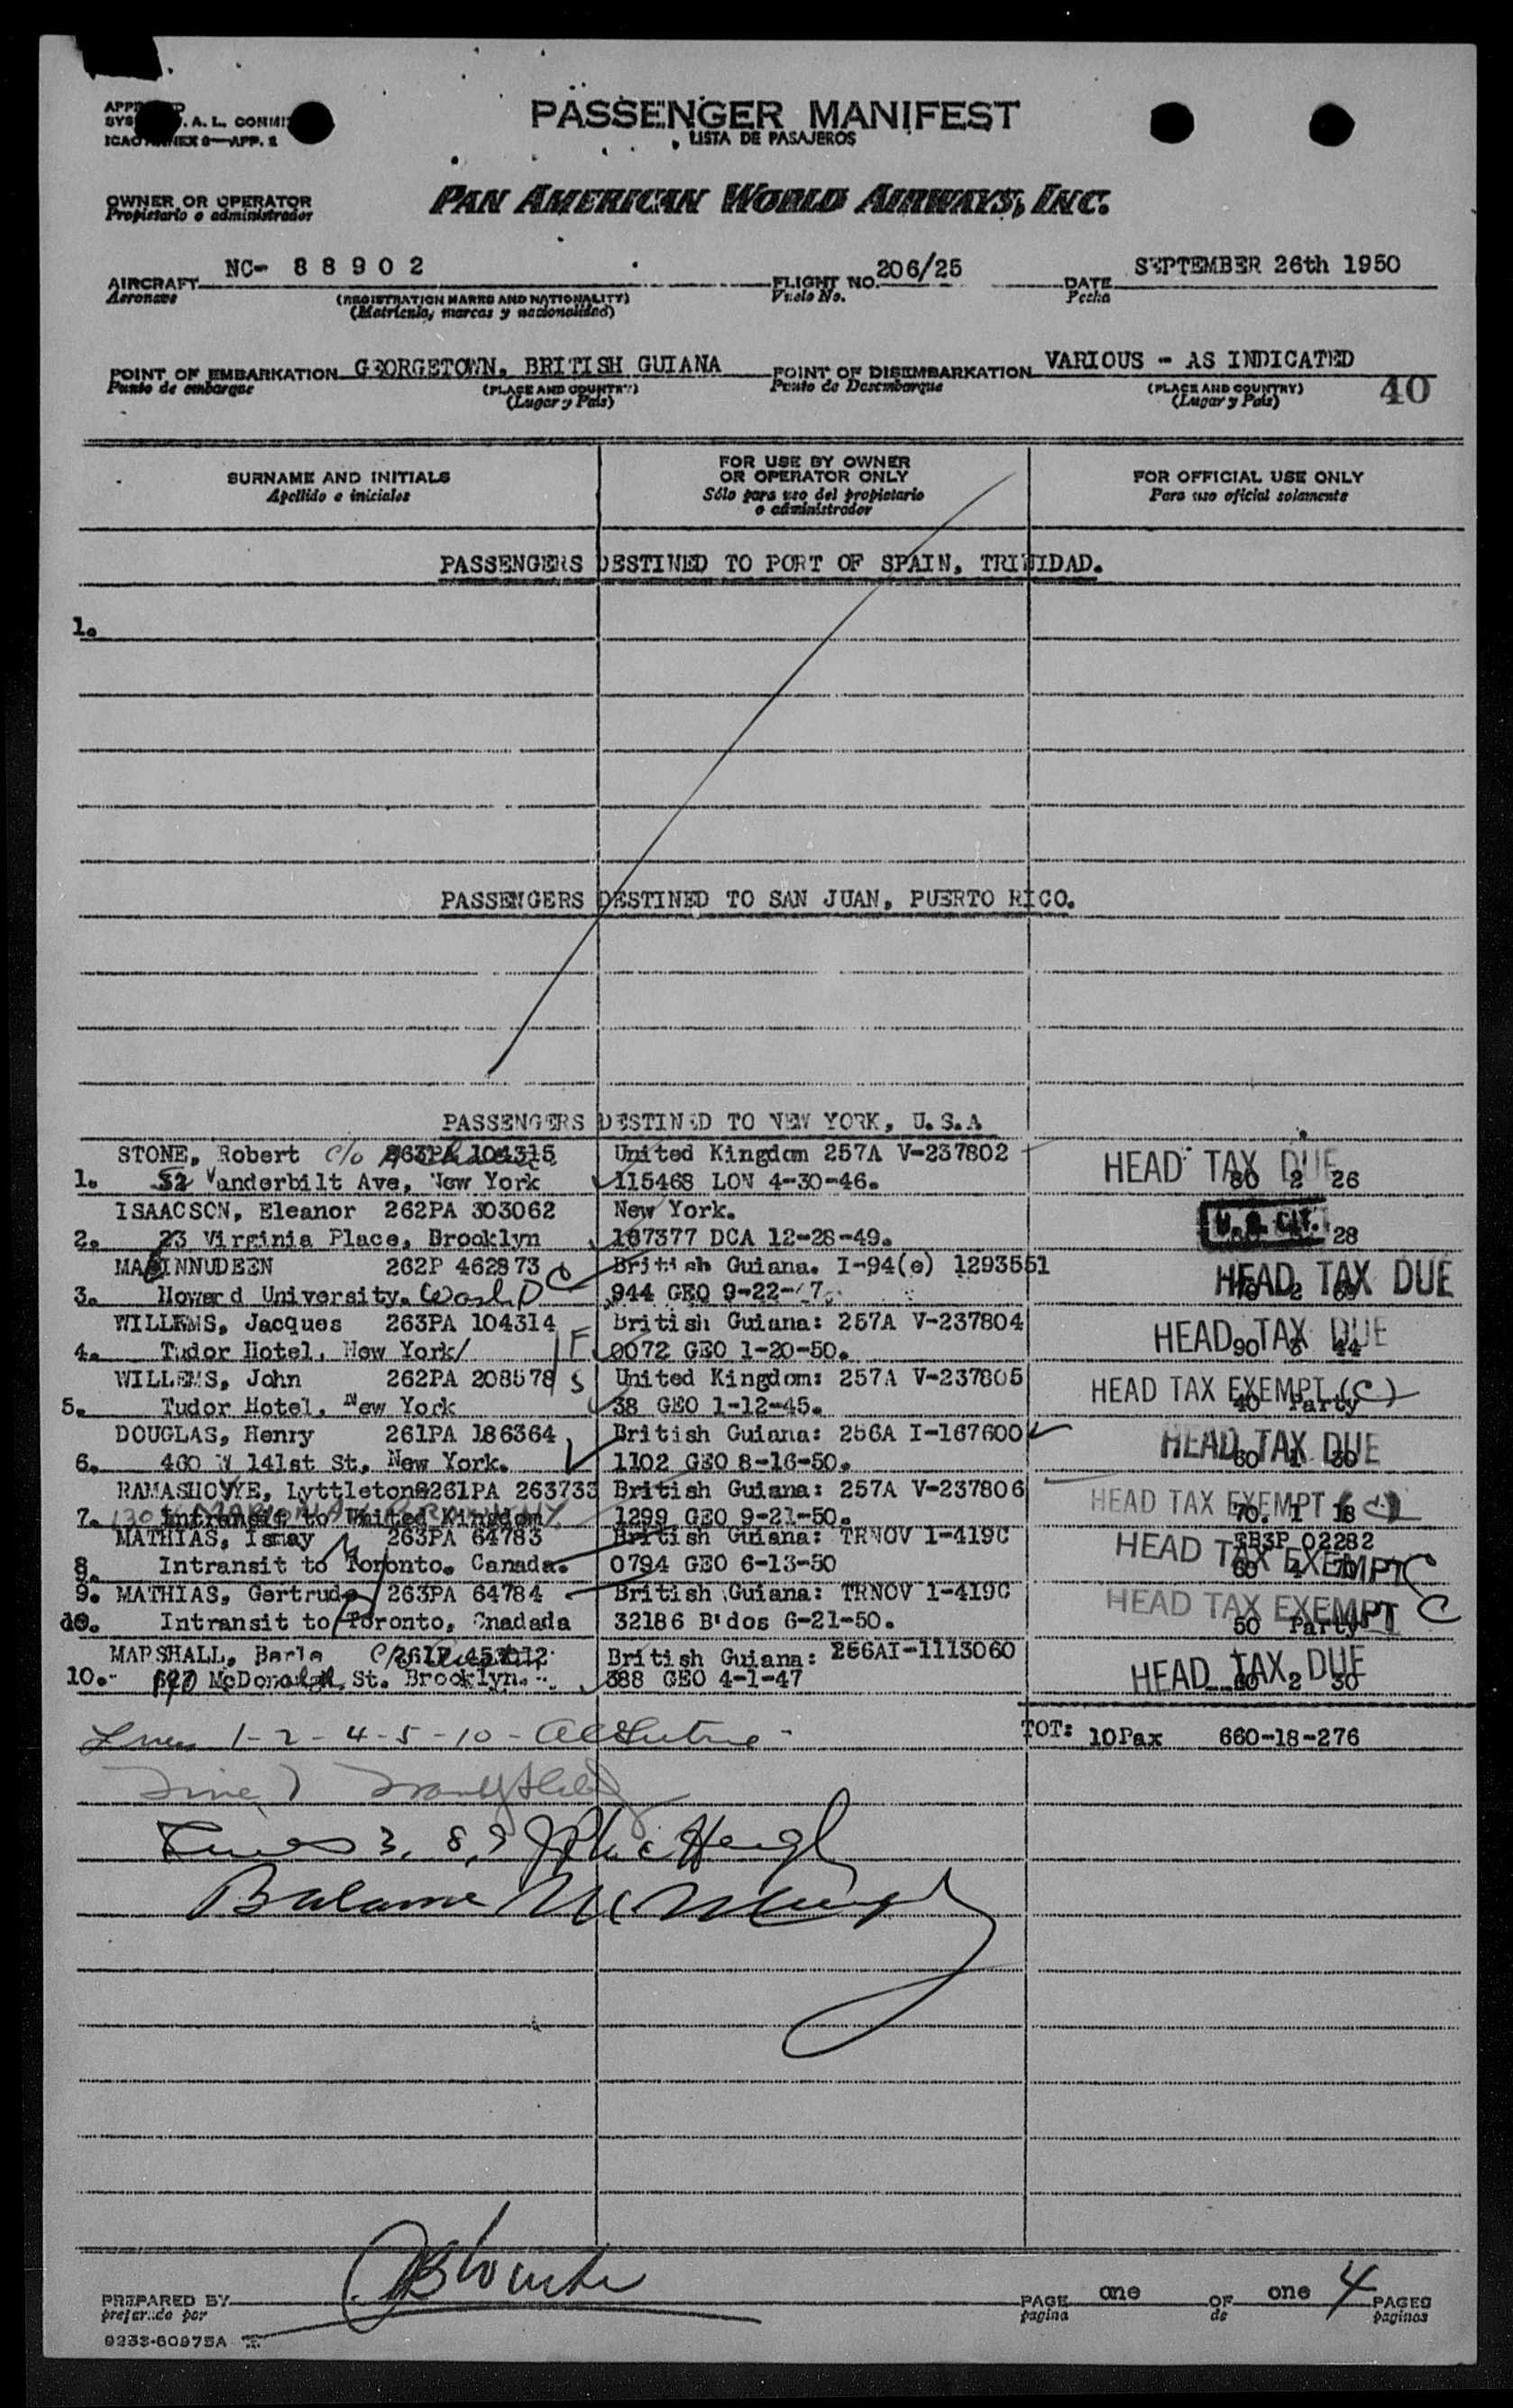 PASSENGER MANIFEST
LISTA DE PASAJEROS
. A. L.
APP. 2
OWNER OR OPERATOR
Propietario o administrador
PAN AMERICAN WORLD AIRWAYS, INC.
AIRCRAFT NC- 8 8 9 0 2 FLIGHT NO. 206/25 DATE SEPTEMBER 26th 1950
Aeronave (REGISTRATION MARKS AND NATIONALITY) Vuelo No. Fecha
(Matricula, marcas y nacionalidad)
POINT OF EMBARKATION GEORGETOWN, BRITISH GUIANA POINT OF DISEMBARKATION VARIOUS - AS INDICATED
Punto de embarque (PLACE AND COUNTRY) Punto de Desembarque (PLACE AND COUNTRY) 40
(Lugar y Pais) (Lugar y Pais)
SURNAME AND INITIALS FOR USE BY OWNER OR OPERATOR ONLY FOR OFFICIAL USE ONLY
Apellido e iniciales Sólo para uso del propietario o administrador Para uso oficial solamente
PASSENGERS DESTINED TO PORT OF SPAIN, TRINIDAD.
1.
PASSENGERS DESTINED TO SAN JUAN, PUERTO RICO.
PASSENGERS DESTINED TO NEW YORK, U.S.A
STONE, Robert c/o 263PA 104315 United Kingdom 257A V-237802
1. 52 Vanderbilt Ave, New York 115468 LON 4-30-46. HEAD TAX DUE 80 2 26
ISAACSON, Eleanor 262PA 303062 New York.
2. 23 Virginia Place, Brooklyn 167377 DCA 12-28-49. U.S. CIT. 28
INNUDEEN 262P 462873 British Guiana. I-94(e) 1293551
3. Howard University. Wash D C 944 GEO 9-22- 7. HEAD TAX DUE
WILLEMS, Jacques 263PA 104314 British Guiana: 257A V-237804
4. Tudor Hotel, New York/ F 0072 GEO 1-20-50. HEAD TAX DUE 90 44
WILLEMS, John 262PA 208578 S United Kingdom: 257A V-237805
5. Tudor Hotel, New York 38 GEO 1-12-45. HEAD TAX EXEMPT (C) 40 Party
DOUGLAS, Henry 261PA 186364 British Guiana: 256A I-167600
6. 460 W 141st St, New York. 1102 GEO 8-16-50. HEAD TAX DUE 60 1 30
Lyttleton 261PA 263733 British Guiana: 257A V-237806
7. Intransit to United Kingdom 1299 GEO 9-21-50. HEAD TAX EXEMPT (C) 70. 1 18
MATHIAS, Ismay 263PA 64783 British Guiana: TRNOV 1-419C 02282
8. Intransit to Toronto. Canada. 0794 GEO 6-13-50 HEAD TAX EXEMPT C
9. MATHIAS, Gertrude 263PA 64784 British Guiana: TRNOV 1-419C
10. Intransit to Toronto, Cnadada 32186 B'dos 6-21-50. HEAD TAX EXEMPT C 50 Party
MARSHALL, c/o British Guiana: 256AI-1113060
10. McDonald St. Brooklyn. 388 GEO 4-1-47 HEAD TAX DUE 2 30
Lines 1-2-4-5-10- TOT: 10Pax 660-18-276
Line 7
Lines 3, 8, 9
Balance
PREPARED BY PAGE one OF one 4 PAGES
preparado por pagina de paginas
9233-60975A